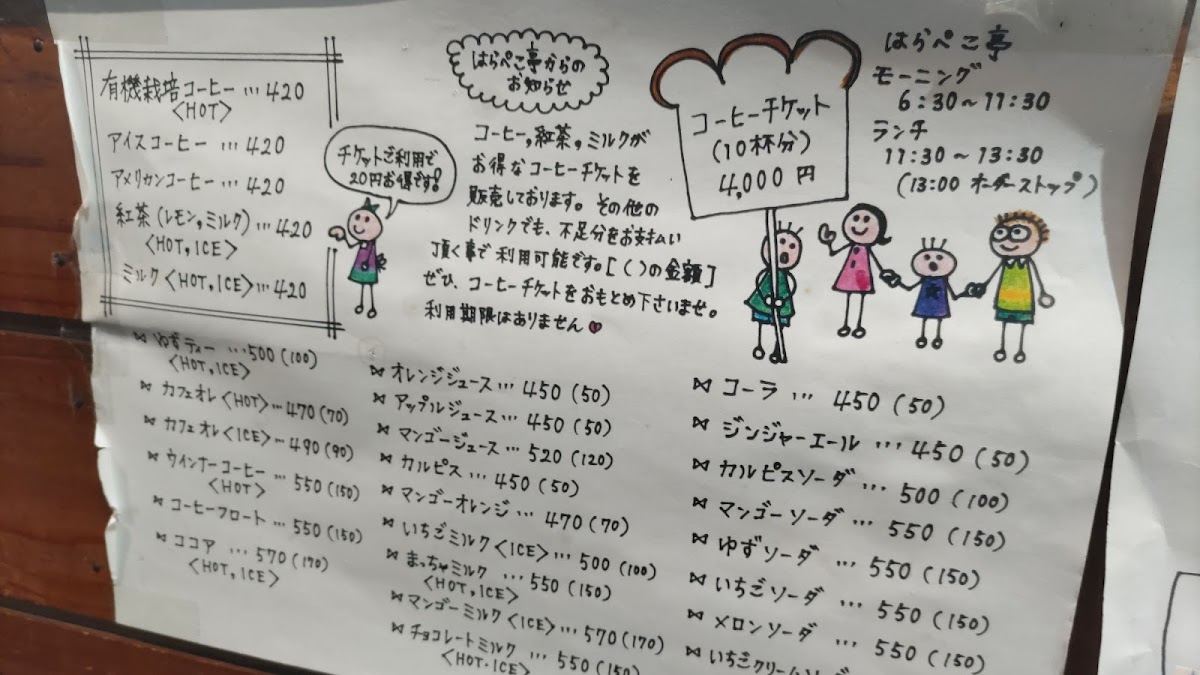 有機栽培コーヒー…420
<HOT>
アイスコーヒー…420
アメリカンコーヒー…420
紅茶(レモン,ミルク)…420
<HOT, ICE>
ミルク<HOT, ICE>…420
チケットご利用で
20円お得です!
はらぺこ亭からの
お知らせ
コーヒー,紅茶,ミルクが
お得なコーヒーチケットを
販売しております。その他の
ドリンクでも、不足分をお支払い
頂く事で利用可能です。[( )の金額]
ぜひ、コーヒーチケットをおもとめ下さいませ。
利用期限はありません
コーヒーチケット
(10杯分)
4,000円
はらぺこ亭
モーニング
6:30~11:30
ランチ
11:30~13:30
(13:00 オーダーストップ)
ゆずティー…500(100)
<HOT, ICE>
カフェオレ<HOT>…470(70)
カフェオレ<ICE>…490(90)
ウインナーコーヒー…550(150)
<HOT>
コーヒーフロート…550(150)
ココア…570(170)
<HOT, ICE>
オレンジジュース…450(50)
アップルジュース…450(50)
マンゴージュース…520(120)
カルピス…450(50)
マンゴーオレンジ…470(70)
いちごミルク<ICE>…500(100)
まっちゃミルク…550(150)
<HOT, ICE>
マンゴーミルク<ICE>…570(170)
チョコレートミルク…550(150
<HOT・ICE>
コーラ…450(50)
ジンジャーエール…450(50)
カルピスソーダ…500(100)
マンゴーソーダ…550(150)
ゆずソーダ…550(150)
いちごソーダ…550(150)
メロンソーダ…550(150)
いちごクリームソーダ